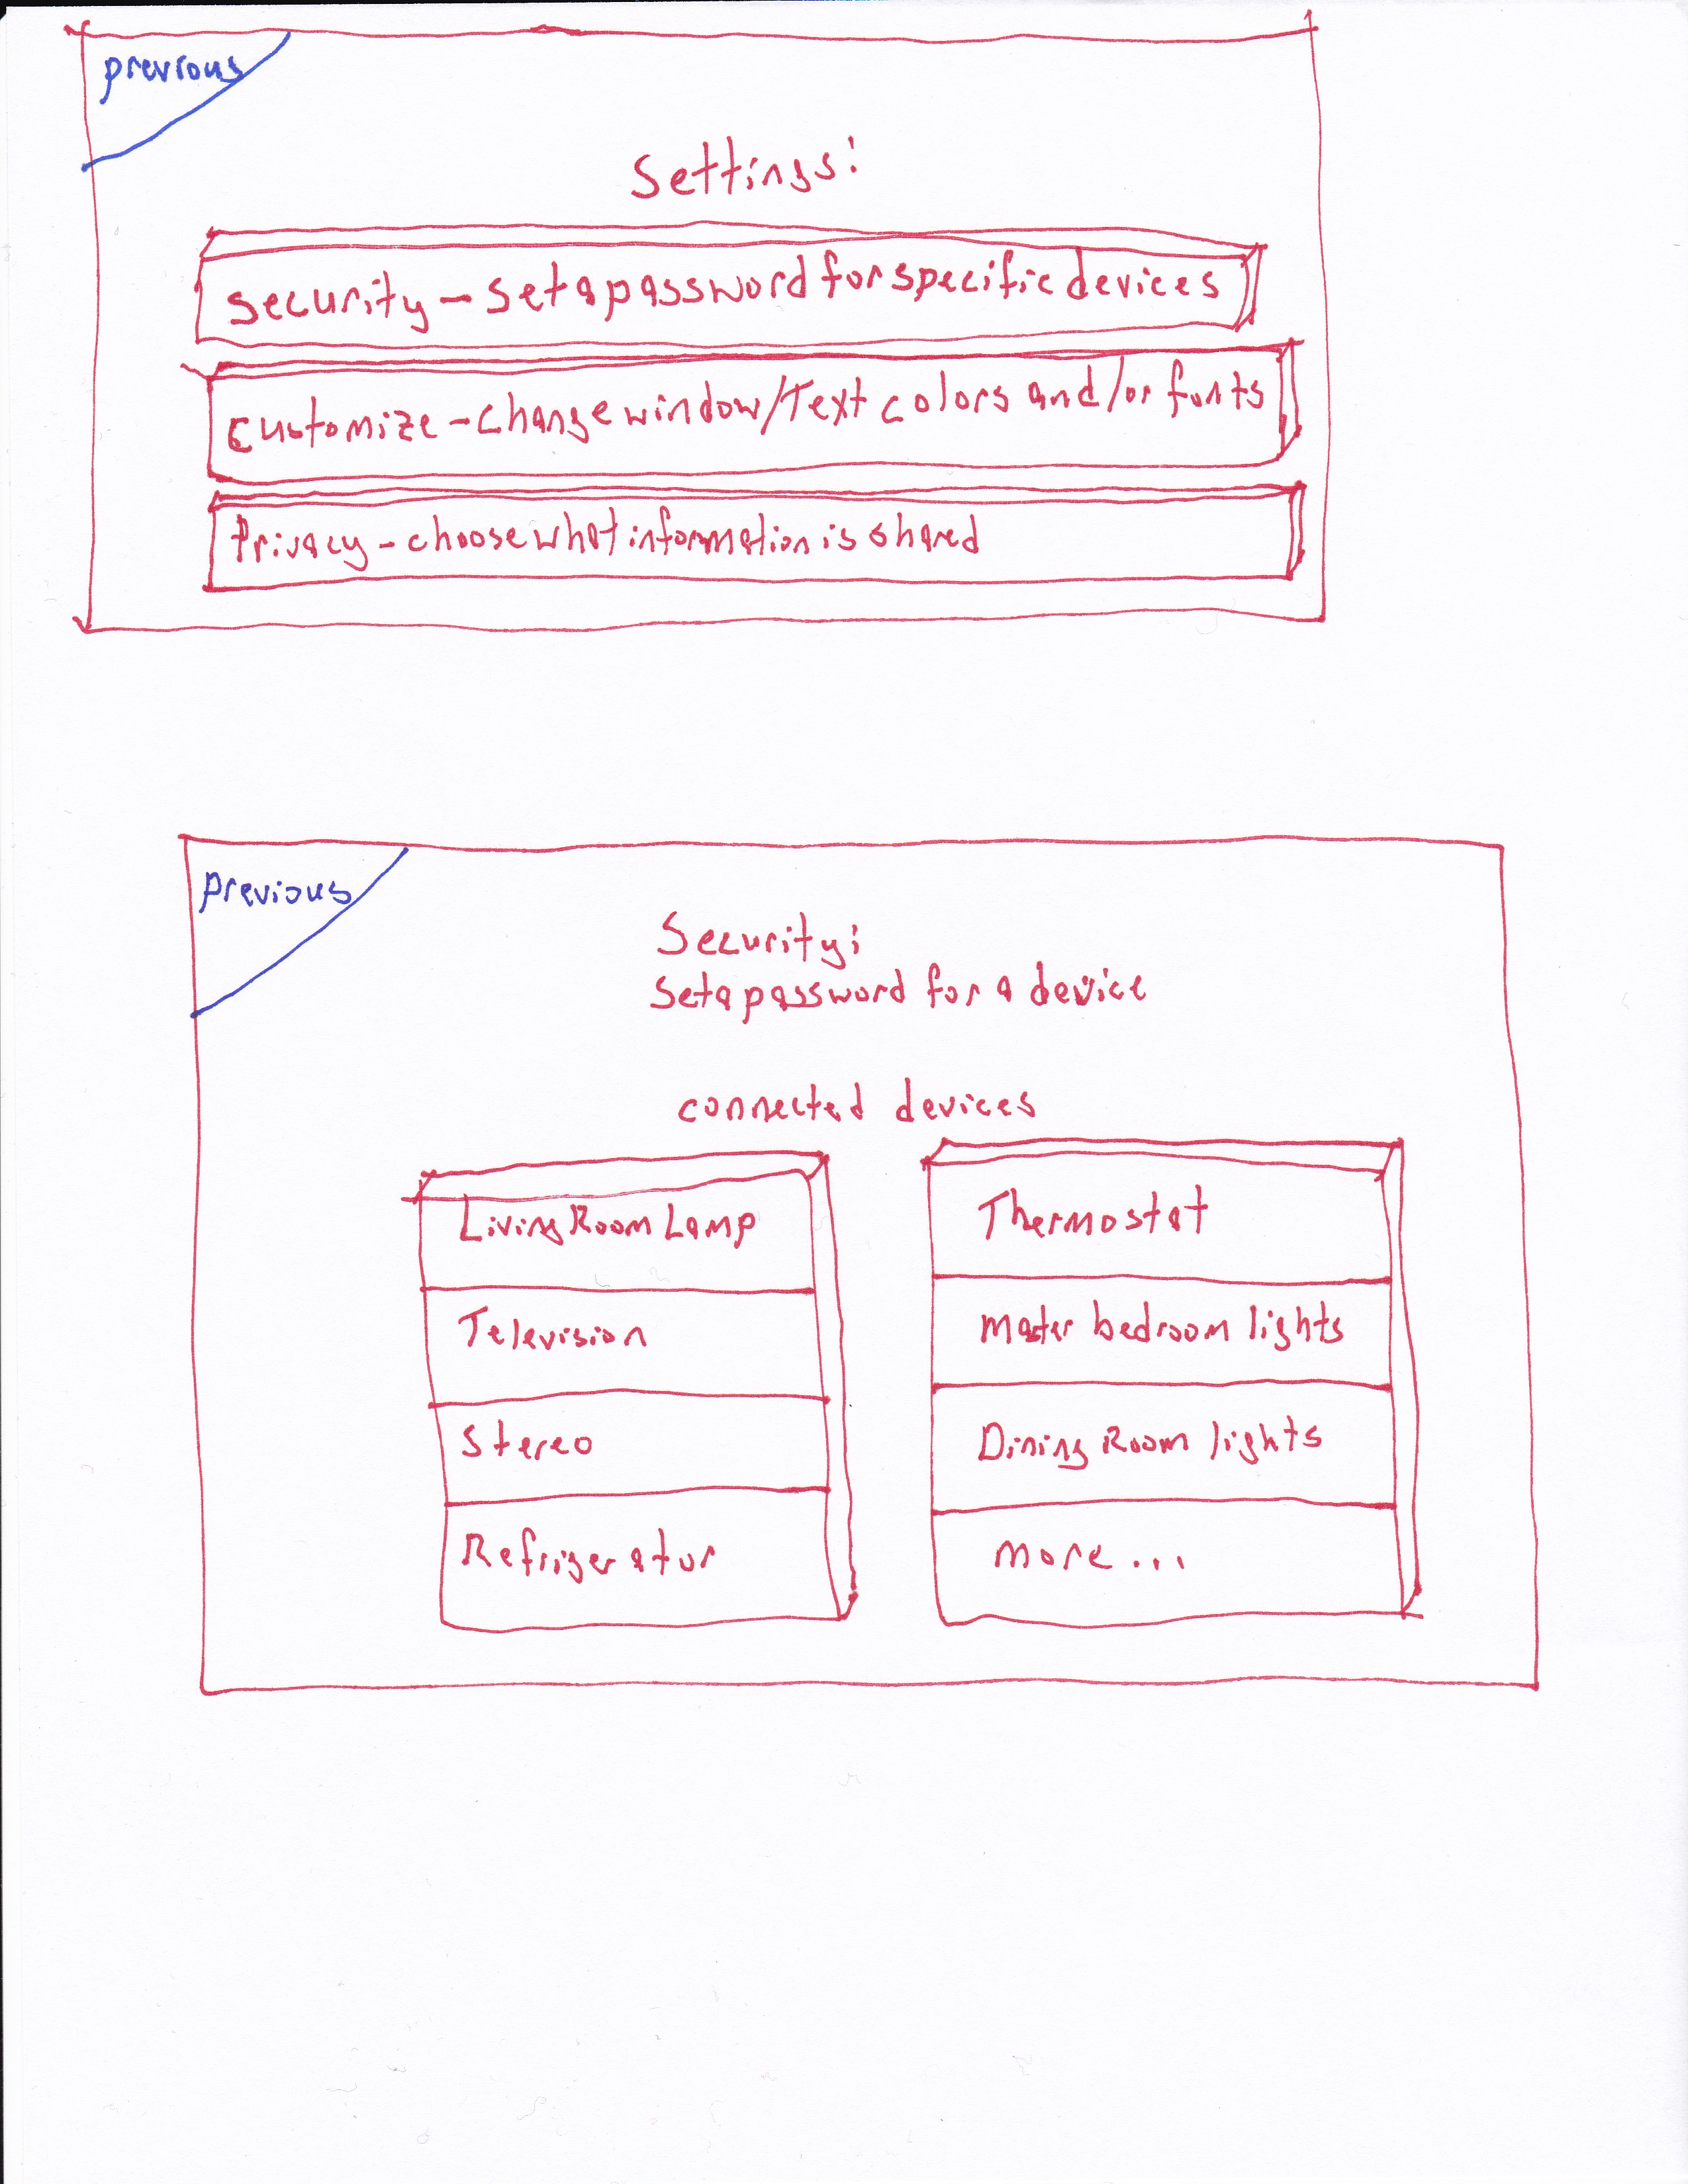 previous
Settings:
Security - Set a password for specific devices
Customize - Change window/Text colors and/or fonts
Privacy - choose what information is shared
Previous
Security:
Set a password for a device
connected devices
Living Room Lamp
Television
Stereo
Refrigerator
Thermostat
Master bedroom lights
Dining Room lights
more...